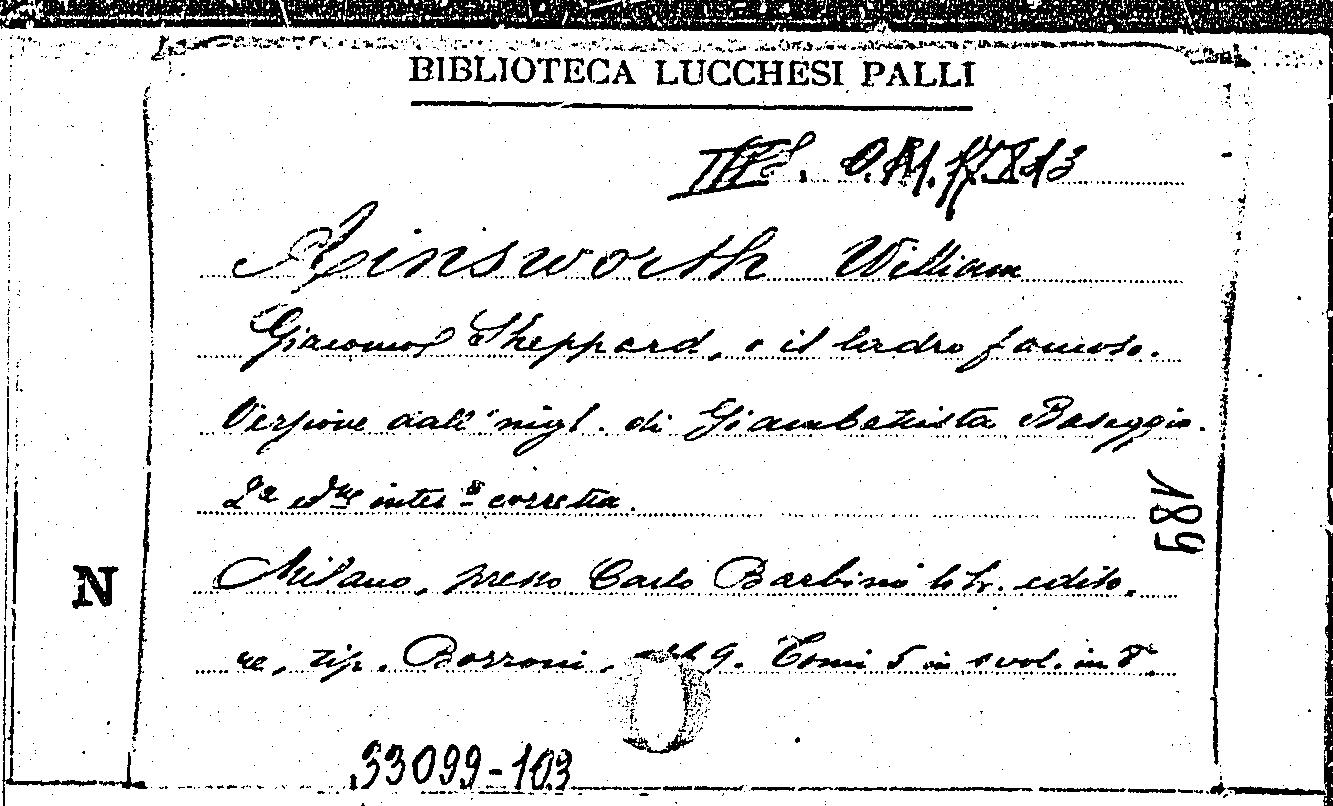 BIBLIOTECA LUCCHESI PALLI
Ainsworth William
Giacomo Sheppard, o il ladro famoso.
Versione dall'ingl. di Giambattista Baseggio.
2ª ed.ne inter.e corretta.
N
689
Milano, presso Carlo Barbini libr. edito-
re, tip. Borroni, Tomi 5 in 1 vol. in 8º.
33099-103